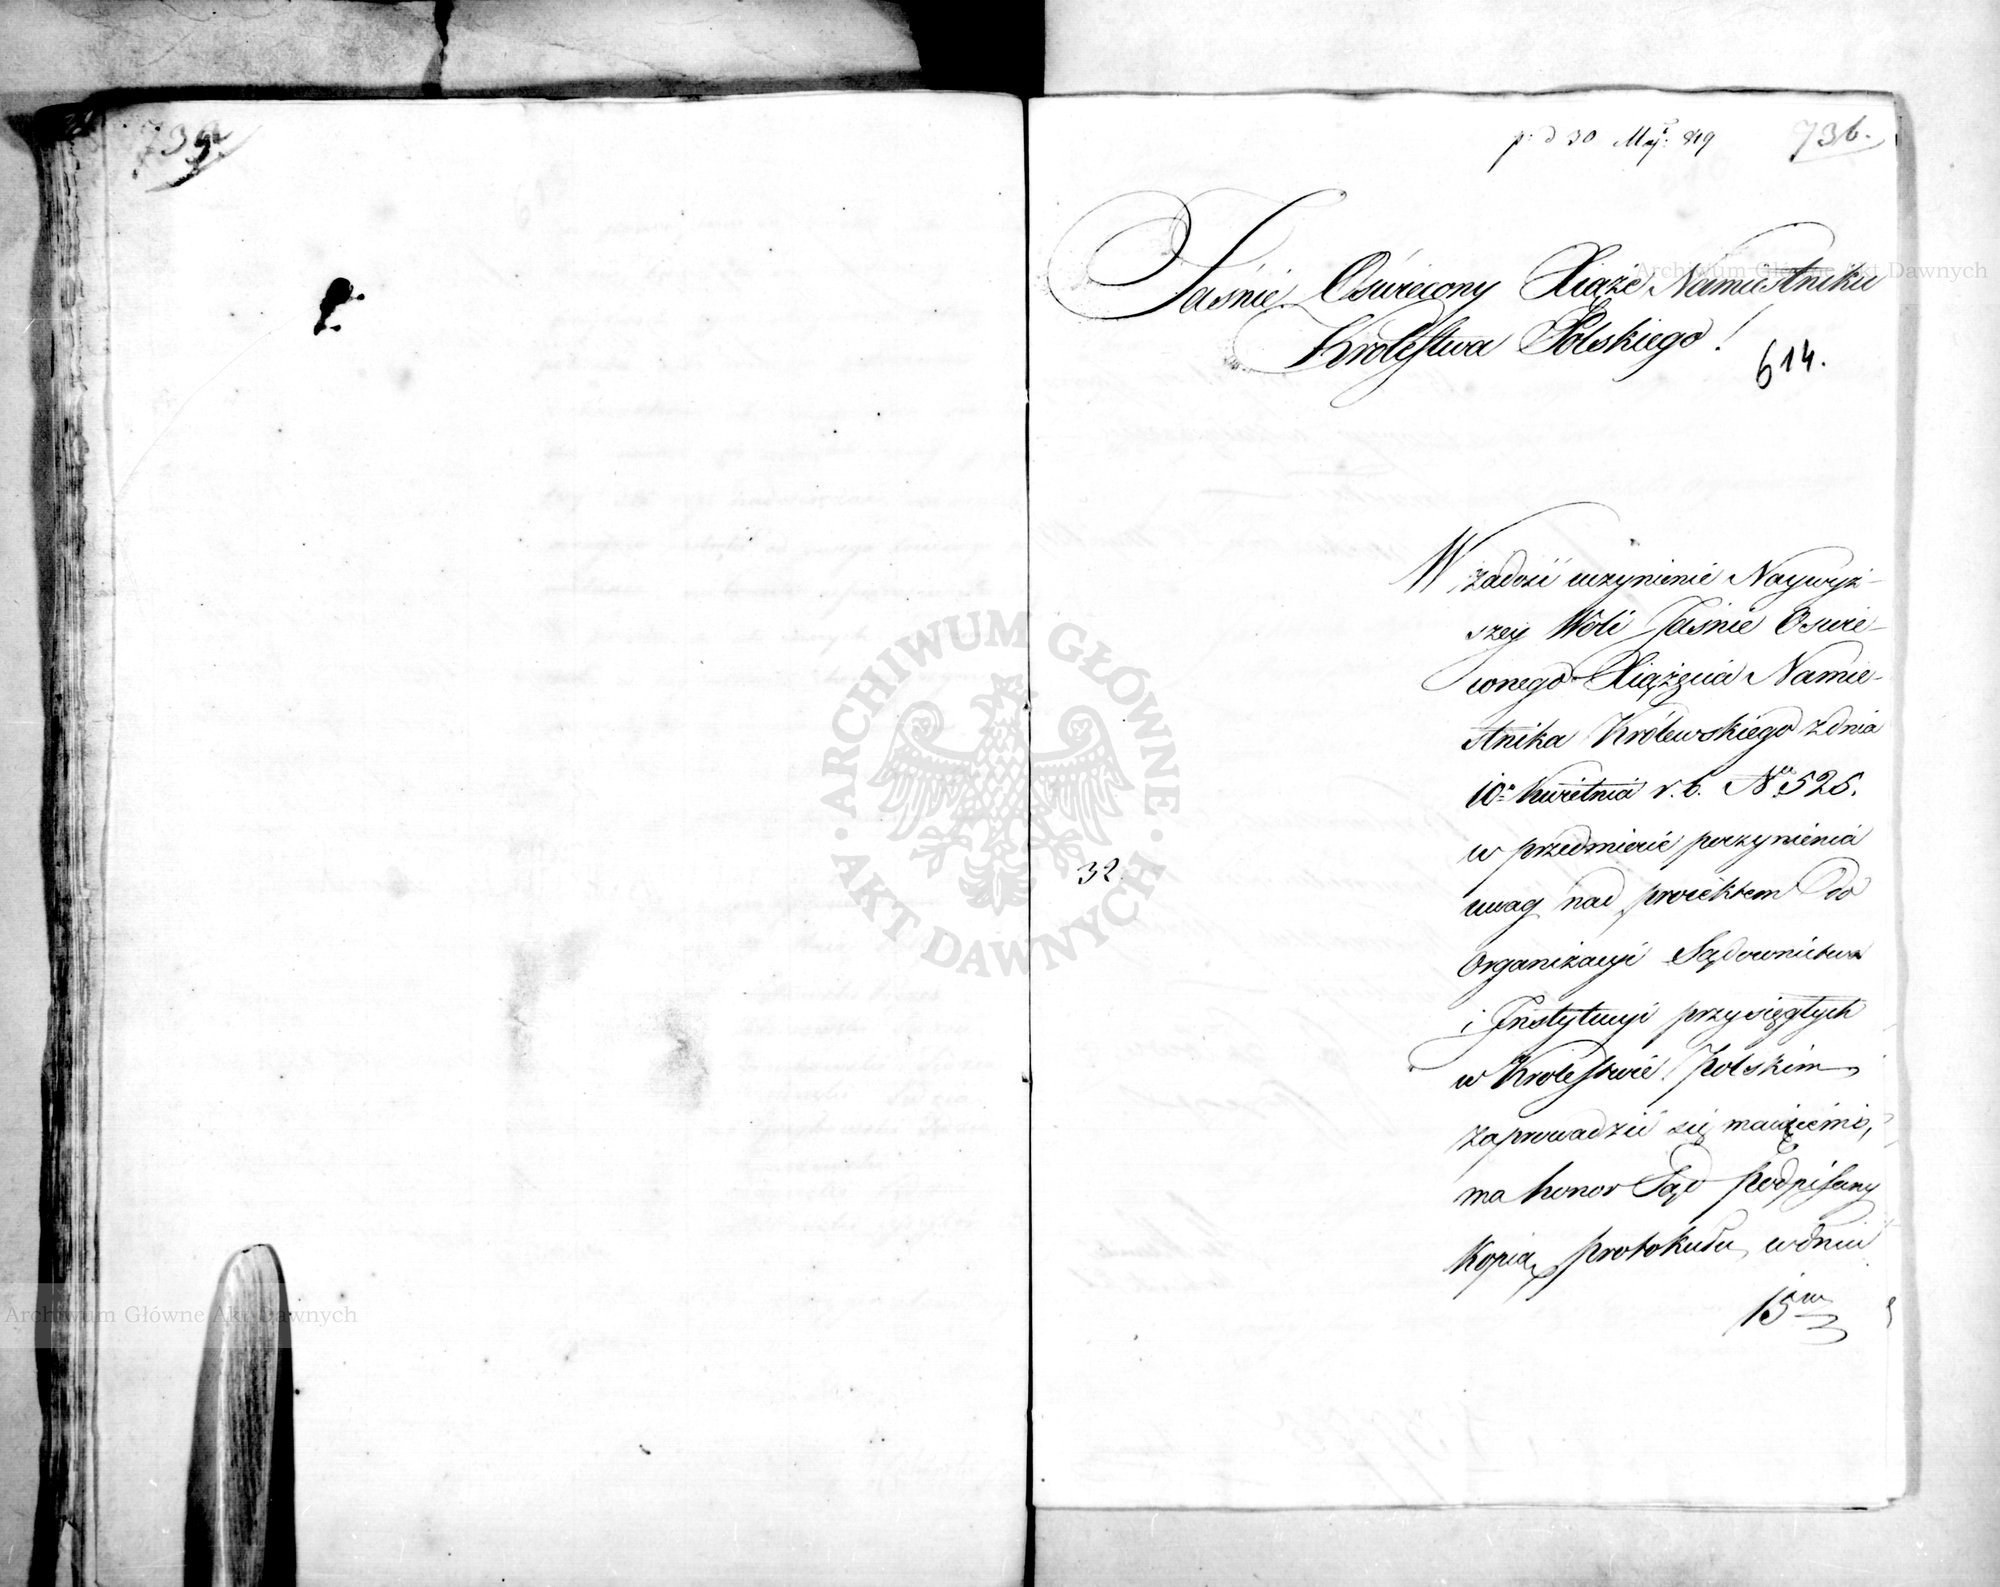 739.
p: d 30 Maj: 819
736.
Jaśnie Oświecony Xiąże Namiestniku
Królestwa Polskiego!
614.
W zadość uczynienie Naywyż-
szey Woli Jaśnie Oświe-
conego Xiążęcia Namie-
stnika Królewskiego z dnia
10º Kwietnia r. b. Nº 525.
w przedmiocie poczynienia
32.
uwag nad proiektem do
Organizacyi Sądownictwa
i Instytucyi przysięgłych
w Królestwie Polskim
zaprowadzić się maiącemi,
ma honor Sąd Podpisany
Kopią protokułu w dniu
15m
ARCHIWUM GŁÓWNE
AKT DAWNYCH
Archiwum Główne Akt Dawnych
Archiwum Główne Akt Dawnych